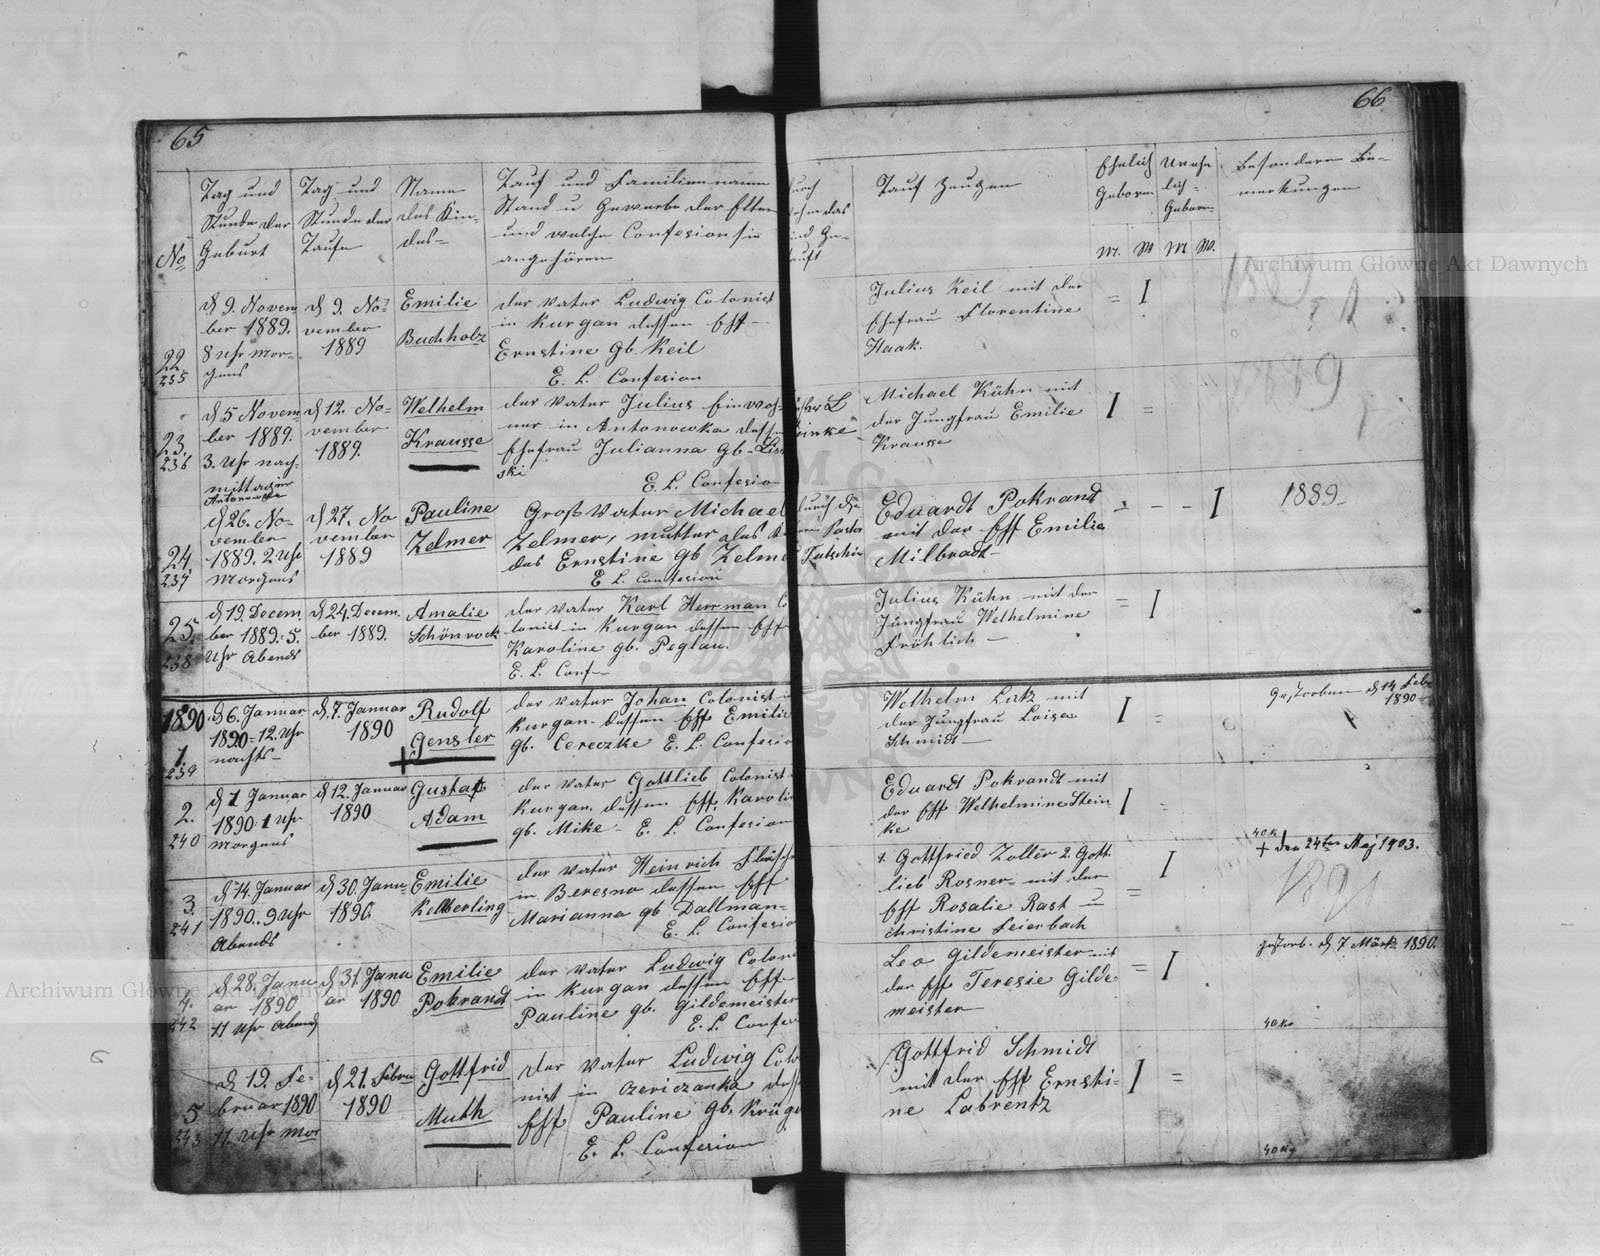 65
66
No
Tag und
Stunde der
Geburt
Tag und
Stunde der
Taufe
Name
des Kin-
des-
Tauf und Familienname
Stand u Gewerbe der Eltern
und welche Confesion sie
angehören
durch
wehm das
Kind Ge-
tauft
Tauf Zeugen
Ehelich
Geboren
M. W
Unehe
lich-
Geboren-
M. W.
Besondere Be-
merkungen
22
235
d 9. Novem
ber 1889.
8 Uhr Mor-
gens
d 9. No-
vember
1889
Emilie
Buchholz
der Vater Ludwig Colonist
in Kurgan dessen Ehf-
Ernstine gb. Keil
E. L. Confesion
Julius Keil mit der
Ehefrau Florentine
Haak.
= I
23.
236
d 5 Novem
ber 1889.
3. Uhr nach-
mittag in
Antonowka
d 12. No-
vember
1889.
Welhelm
Krausse
der Vater Julius Einwoh-
ner in Antonowka dessen
Ehefrau Julianna gb-Liss
ski
E. L. Confesion
Michael Kühn mit
der Jungfrau Emilie
Krausse
I =
24
237
d 26. No-
vember
1889. 2 Uhr
Morgens
d 27. No
vember
1889
Pauline
Zelmer
Groß Vater Michael
Zelmer, mutter des Kin
des Ernstine gb Zelmer
E L. Confesion
durch den
Pastor
Eduardt Pokrandt
mit der Ehf Emilie
Milbradt-
= - - I
1889-
25.
238
d 19. Decem.
ber 1889.-5.
Uhr Abends
d 24. Decem.
ber 1889.
Amalie
Schönrock
der Vater Karl Herrman Co
lonist in Kurgan dessen Ehf
Karoline gb. Peglau.
E. L. Conf-
Julius Kühn mit der
Jungfrau Welhelmine
Fröhlich-
= I
1890
1.
239
d 6. Januar
1890-12. Uhr
nachts-
d. 7. Januar
1890
Rudolf
Gensler
der Vater Johan Colonist in
Kurgan- dessen Ehf Emilie
gb. Cereczke E. L. Confesion
Welhelm Lutz mit
der Jungfrau Loise
Schmidt-
I =
Gestorben d 14 Febr
1890-
2.
240
d 1 Januar
1890. 1 Uhr
Morgens
d 12. Januar
1890
Gustaf
Adam
der Vater Gottlieb Colonist
Kurgan. dessen Ehf. Karolin
gb. Mike- E. L. Confesion
Eduardt Pokrandt mit
der Ehf Welhelmine Stein-
ke
I =
3.
241
d 14. Januar
1890.. 9 Uhr
Abends
d 30. Janu-
1890.
Emilie
Kelberling
der Vater Heinrich
in Beresno dessen Ehf
Marianna gb. Dallman-
E. L. Confesion
1. Gottfried Zoller 2. Gott.
lieb Rosner- mit der
Ehf Rosalie Rast u
Christine Feierbach
= I
40 K
+ den 24ten Maj 1903.
4.
242
d 28. Janu
ar 1890
11 Uhr Abend
d 31. Janu
ar 1890
Emilie
Pokrandt
der Vater Ludwig Colon
in Kurgan dessen Ehf-
Pauline gb. Gildemeister
E. L. Confesi
Leo Gildemeister mit
der Ehf Teresie Gilde
meister
= I
gestorb. d 7 Märtz 1890.
40 Ko
5
243
d 19. Fe-
bruar 1890
11 Uhr Mor
d 21. Febru
1890
Gottfrid
Muth
Der Vater Ludwig Colo
nist in Czericzanka dess
Ehf Pauline gb. Krüge
E. L. Confesion
Gottfrid Schmidt
mit der Ehf Ernsti-
ne Labrentz
I =
40 Kg.
Archiwum Główne Akt Dawnych
Archiwum Główne Akt Dawnych